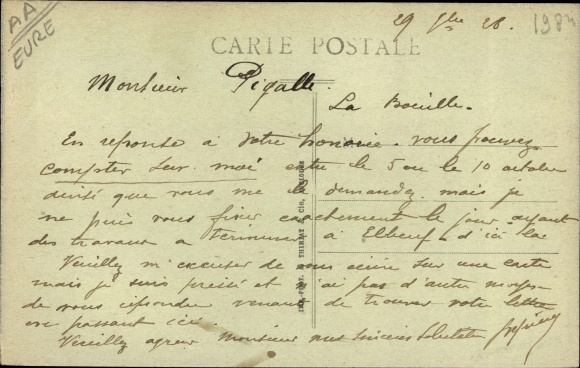 AA
EURE
29 7bre 28.
198
CARTE POSTALE
Monsieur Pigalle.
La Bouille.
En reponse à votre honorée. vous pouvez
compter sur moi entre le 5 ou le 10 octobre
que vous me le demandez. mais je
ne puis vous fixer exactement le jour ayant
des travaux a terminer à Elbeuf d'ici la
Veuillez m'excuser de vous écrire sur une carte
mais je suis pressé et n'ai pas d'autre moyen
de vous repondre venant de trouver votre lettre
en passant ici.
Veuillez agreer Monsieur mes sinceres Salutations